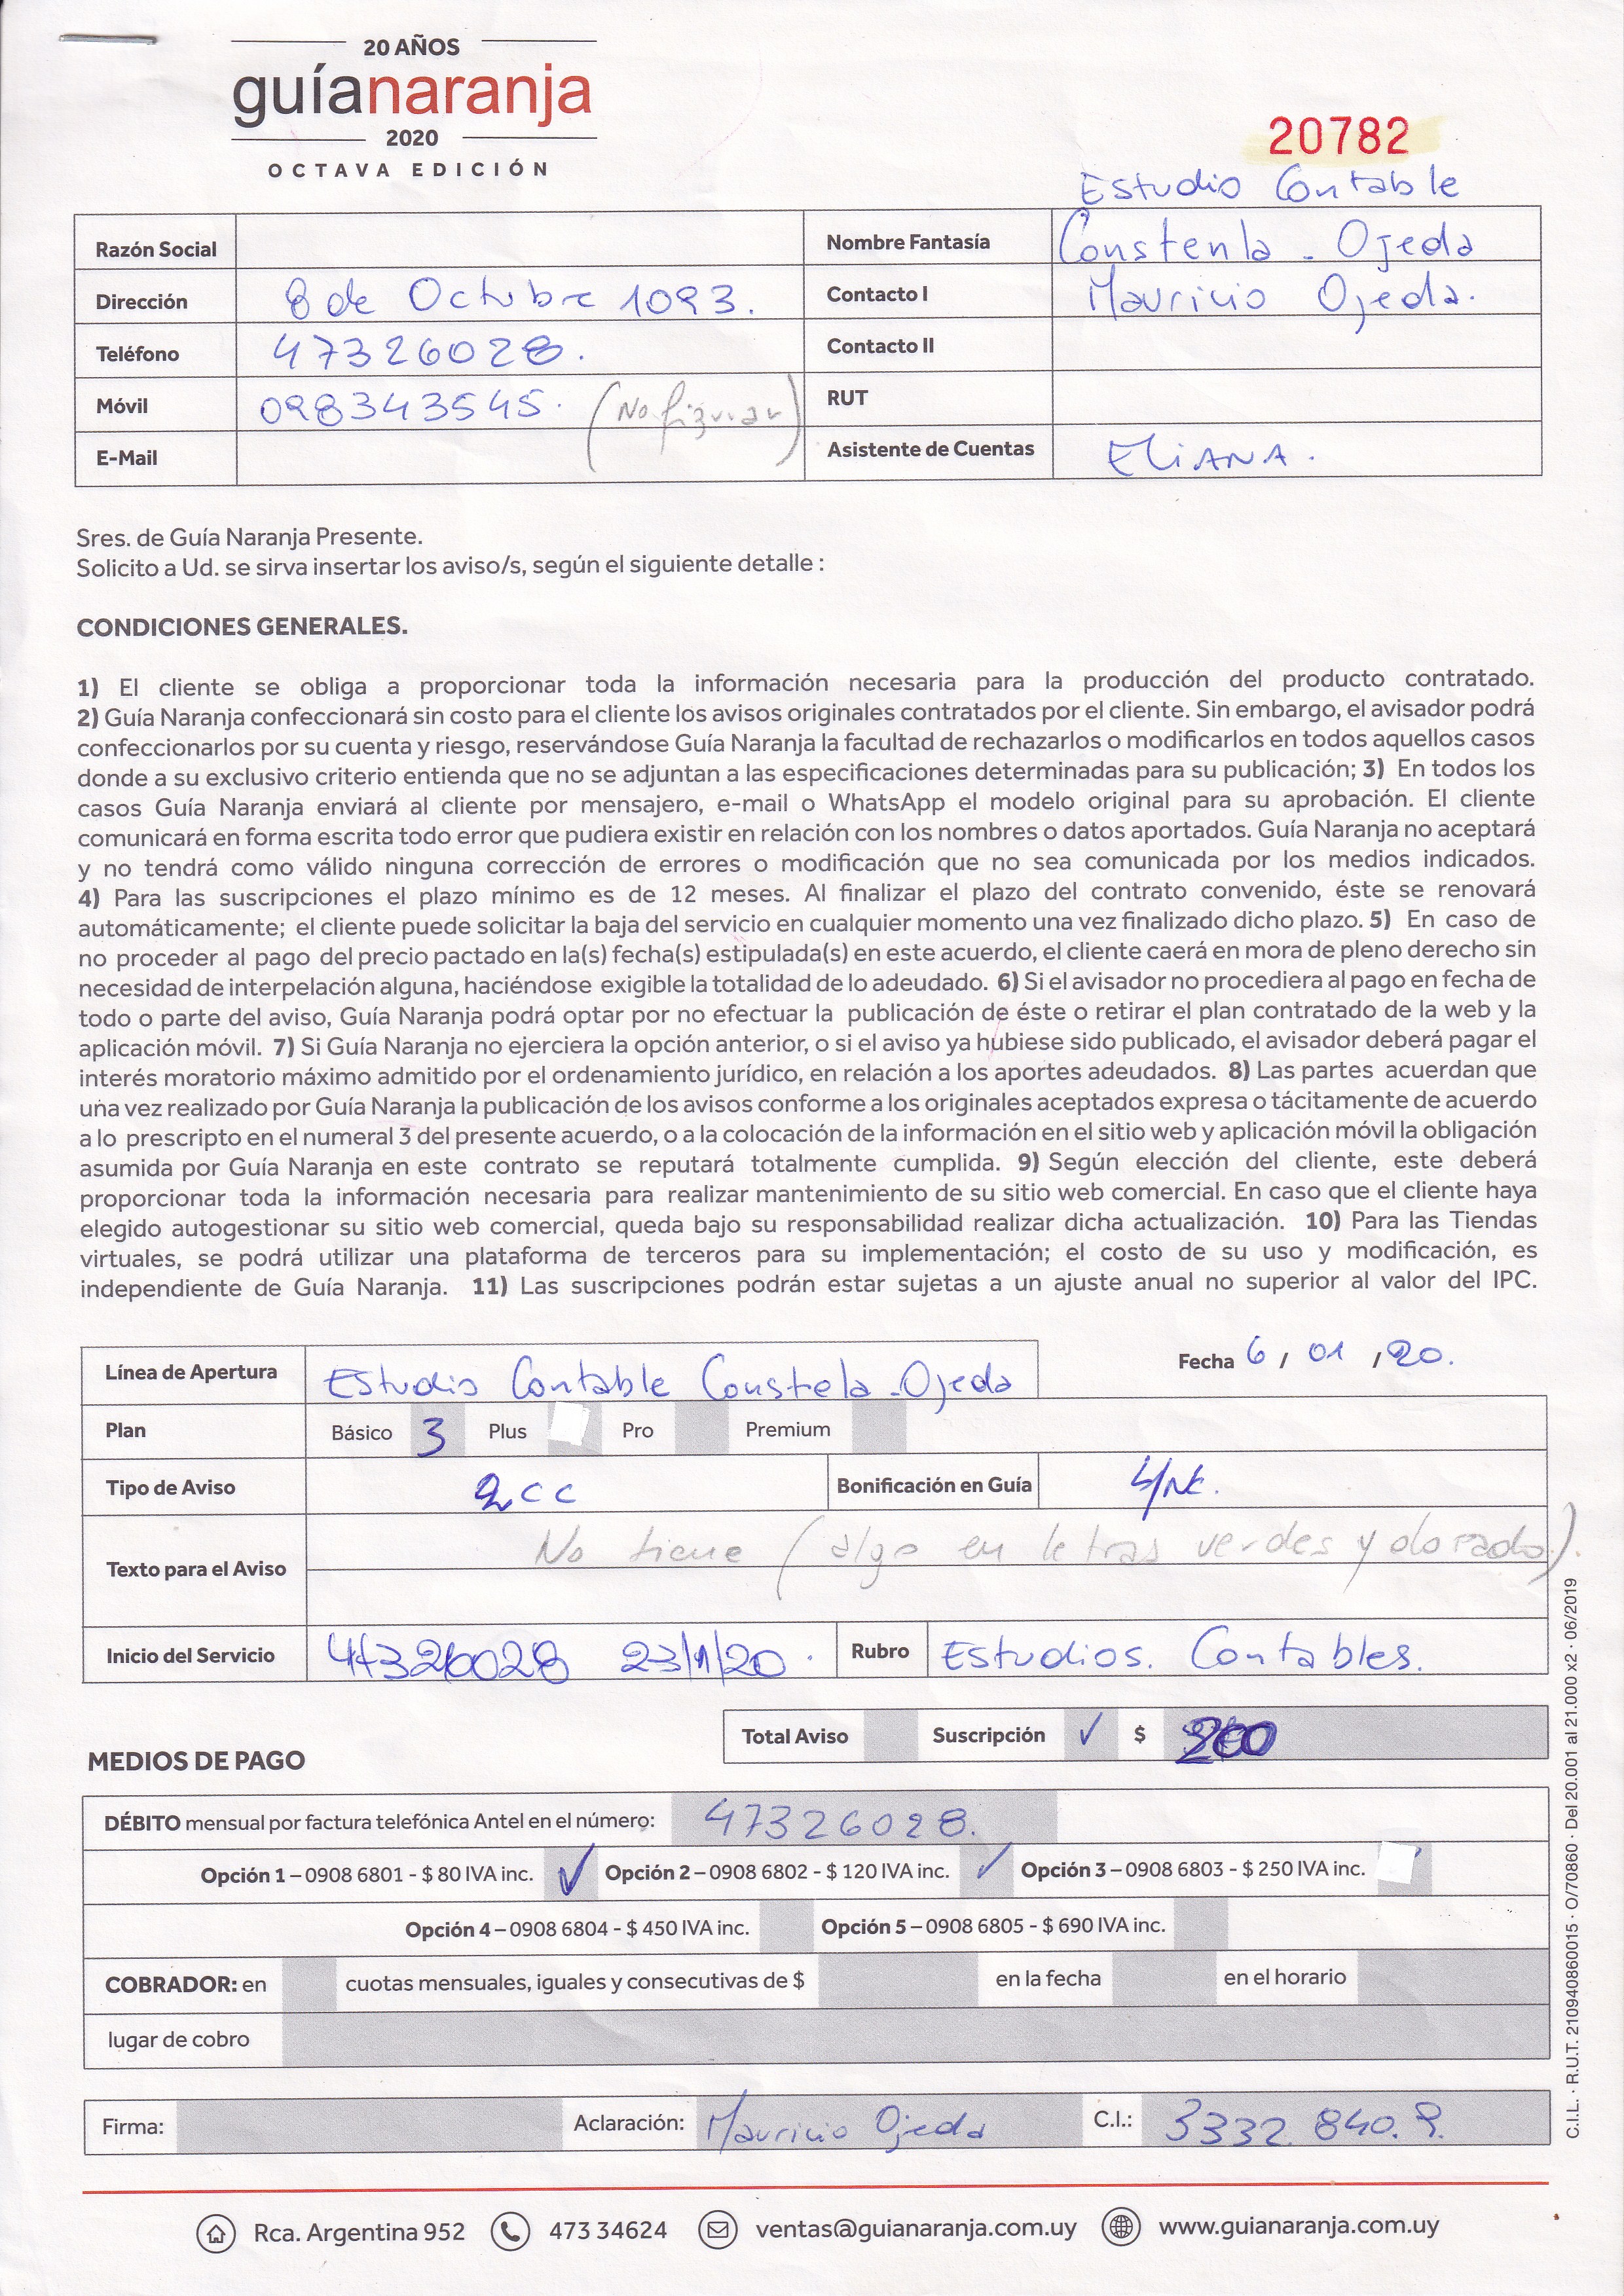 20 AÑOS
guíanaranja
2020
OCTAVA EDICIÓN
20782
Estudio Contable
Razón Social Nombre Fantasía Constenla - Ojeda
Dirección 8 de Octubre 1093. Contacto I Mauricio Ojeda.
Teléfono 47326028. Contacto II
Móvil 098343545. (No figurar) RUT
E-Mail Asistente de Cuentas ELIANA.
Sres. de Guía Naranja Presente.
Solicito a Ud. se sirva insertar los aviso/s, según el siguiente detalle :
CONDICIONES GENERALES.
1) El cliente se obliga a proporcionar toda la información necesaria para la producción del producto contratado.
2) Guía Naranja confeccionará sin costo para el cliente los avisos originales contratados por el cliente. Sin embargo, el avisador podrá
confeccionarlos por su cuenta y riesgo, reservándose Guía Naranja la facultad de rechazarlos o modificarlos en todos aquellos casos
donde a su exclusivo criterio entienda que no se adjuntan a las especificaciones determinadas para su publicación; 3) En todos los
casos Guía Naranja enviará al cliente por mensajero, e-mail o WhatsApp el modelo original para su aprobación. El cliente
comunicará en forma escrita todo error que pudiera existir en relación con los nombres o datos aportados. Guía Naranja no aceptará
y no tendrá como válido ninguna corrección de errores o modificación que no sea comunicada por los medios indicados.
4) Para las suscripciones el plazo mínimo es de 12 meses. Al finalizar el plazo del contrato convenido, éste se renovará
automáticamente; el cliente puede solicitar la baja del servicio en cualquier momento una vez finalizado dicho plazo. 5) En caso de
no proceder al pago del precio pactado en la(s) fecha(s) estipulada(s) en este acuerdo, el cliente caerá en mora de pleno derecho sin
necesidad de interpelación alguna, haciéndose exigible la totalidad de lo adeudado. 6) Si el avisador no procediera al pago en fecha de
todo o parte del aviso, Guía Naranja podrá optar por no efectuar la publicación de éste o retirar el plan contratado de la web y la
aplicación móvil. 7) Si Guía Naranja no ejerciera la opción anterior, o si el aviso ya hubiese sido publicado, el avisador deberá pagar el
interés moratorio máximo admitido por el ordenamiento jurídico, en relación a los aportes adeudados. 8) Las partes acuerdan que
una vez realizado por Guía Naranja la publicación de los avisos conforme a los originales aceptados expresa o tácitamente de acuerdo
a lo prescripto en el numeral 3 del presente acuerdo, o a la colocación de la información en el sitio web y aplicación móvil la obligación
asumida por Guía Naranja en este contrato se reputará totalmente cumplida. 9) Según elección del cliente, este deberá
proporcionar toda la información necesaria para realizar mantenimiento de su sitio web comercial. En caso que el cliente haya
elegido autogestionar su sitio web comercial, queda bajo su responsabilidad realizar dicha actualización. 10) Para las Tiendas
virtuales, se podrá utilizar una plataforma de terceros para su implementación; el costo de su uso y modificación, es
independiente de Guía Naranja. 11) Las suscripciones podrán estar sujetas a un ajuste anual no superior al valor del IPC.
Línea de Apertura Estudio Contable Constela - Ojeda Fecha 6 / 01 / 20.
Plan Básico 3 Plus Pro Premium
Tipo de Aviso 2cc Bonificación en Guía
Texto para el Aviso No tiene (algo en letras verdes y dorado).
Inicio del Servicio 47326028 23/1/20. Rubro Estudios. Contables.
Total Aviso Suscripción ✓ $ 200
MEDIOS DE PAGO
DÉBITO mensual por factura telefónica Antel en el número: 47326028.
Opción 1 – 0908 6801 - $ 80 IVA inc. ✓ Opción 2 – 0908 6802 - $ 120 IVA inc. ✓ Opción 3 – 0908 6803 - $ 250 IVA inc.
Opción 4 – 0908 6804 - $ 450 IVA inc. Opción 5 – 0908 6805 - $ 690 IVA inc.
COBRADOR: en cuotas mensuales, iguales y consecutivas de $ en la fecha en el horario
lugar de cobro
Firma: Aclaración: Mauricio Ojeda C.I.: 3332 840. 9.
Rca. Argentina 952 473 34624 ventas@guianaranja.com.uy www.guianaranja.com.uy
C.I.L. · R.U.T. 210940860015 · O/70860 · Del 20.001 al 21.000 x2 · 06/2019